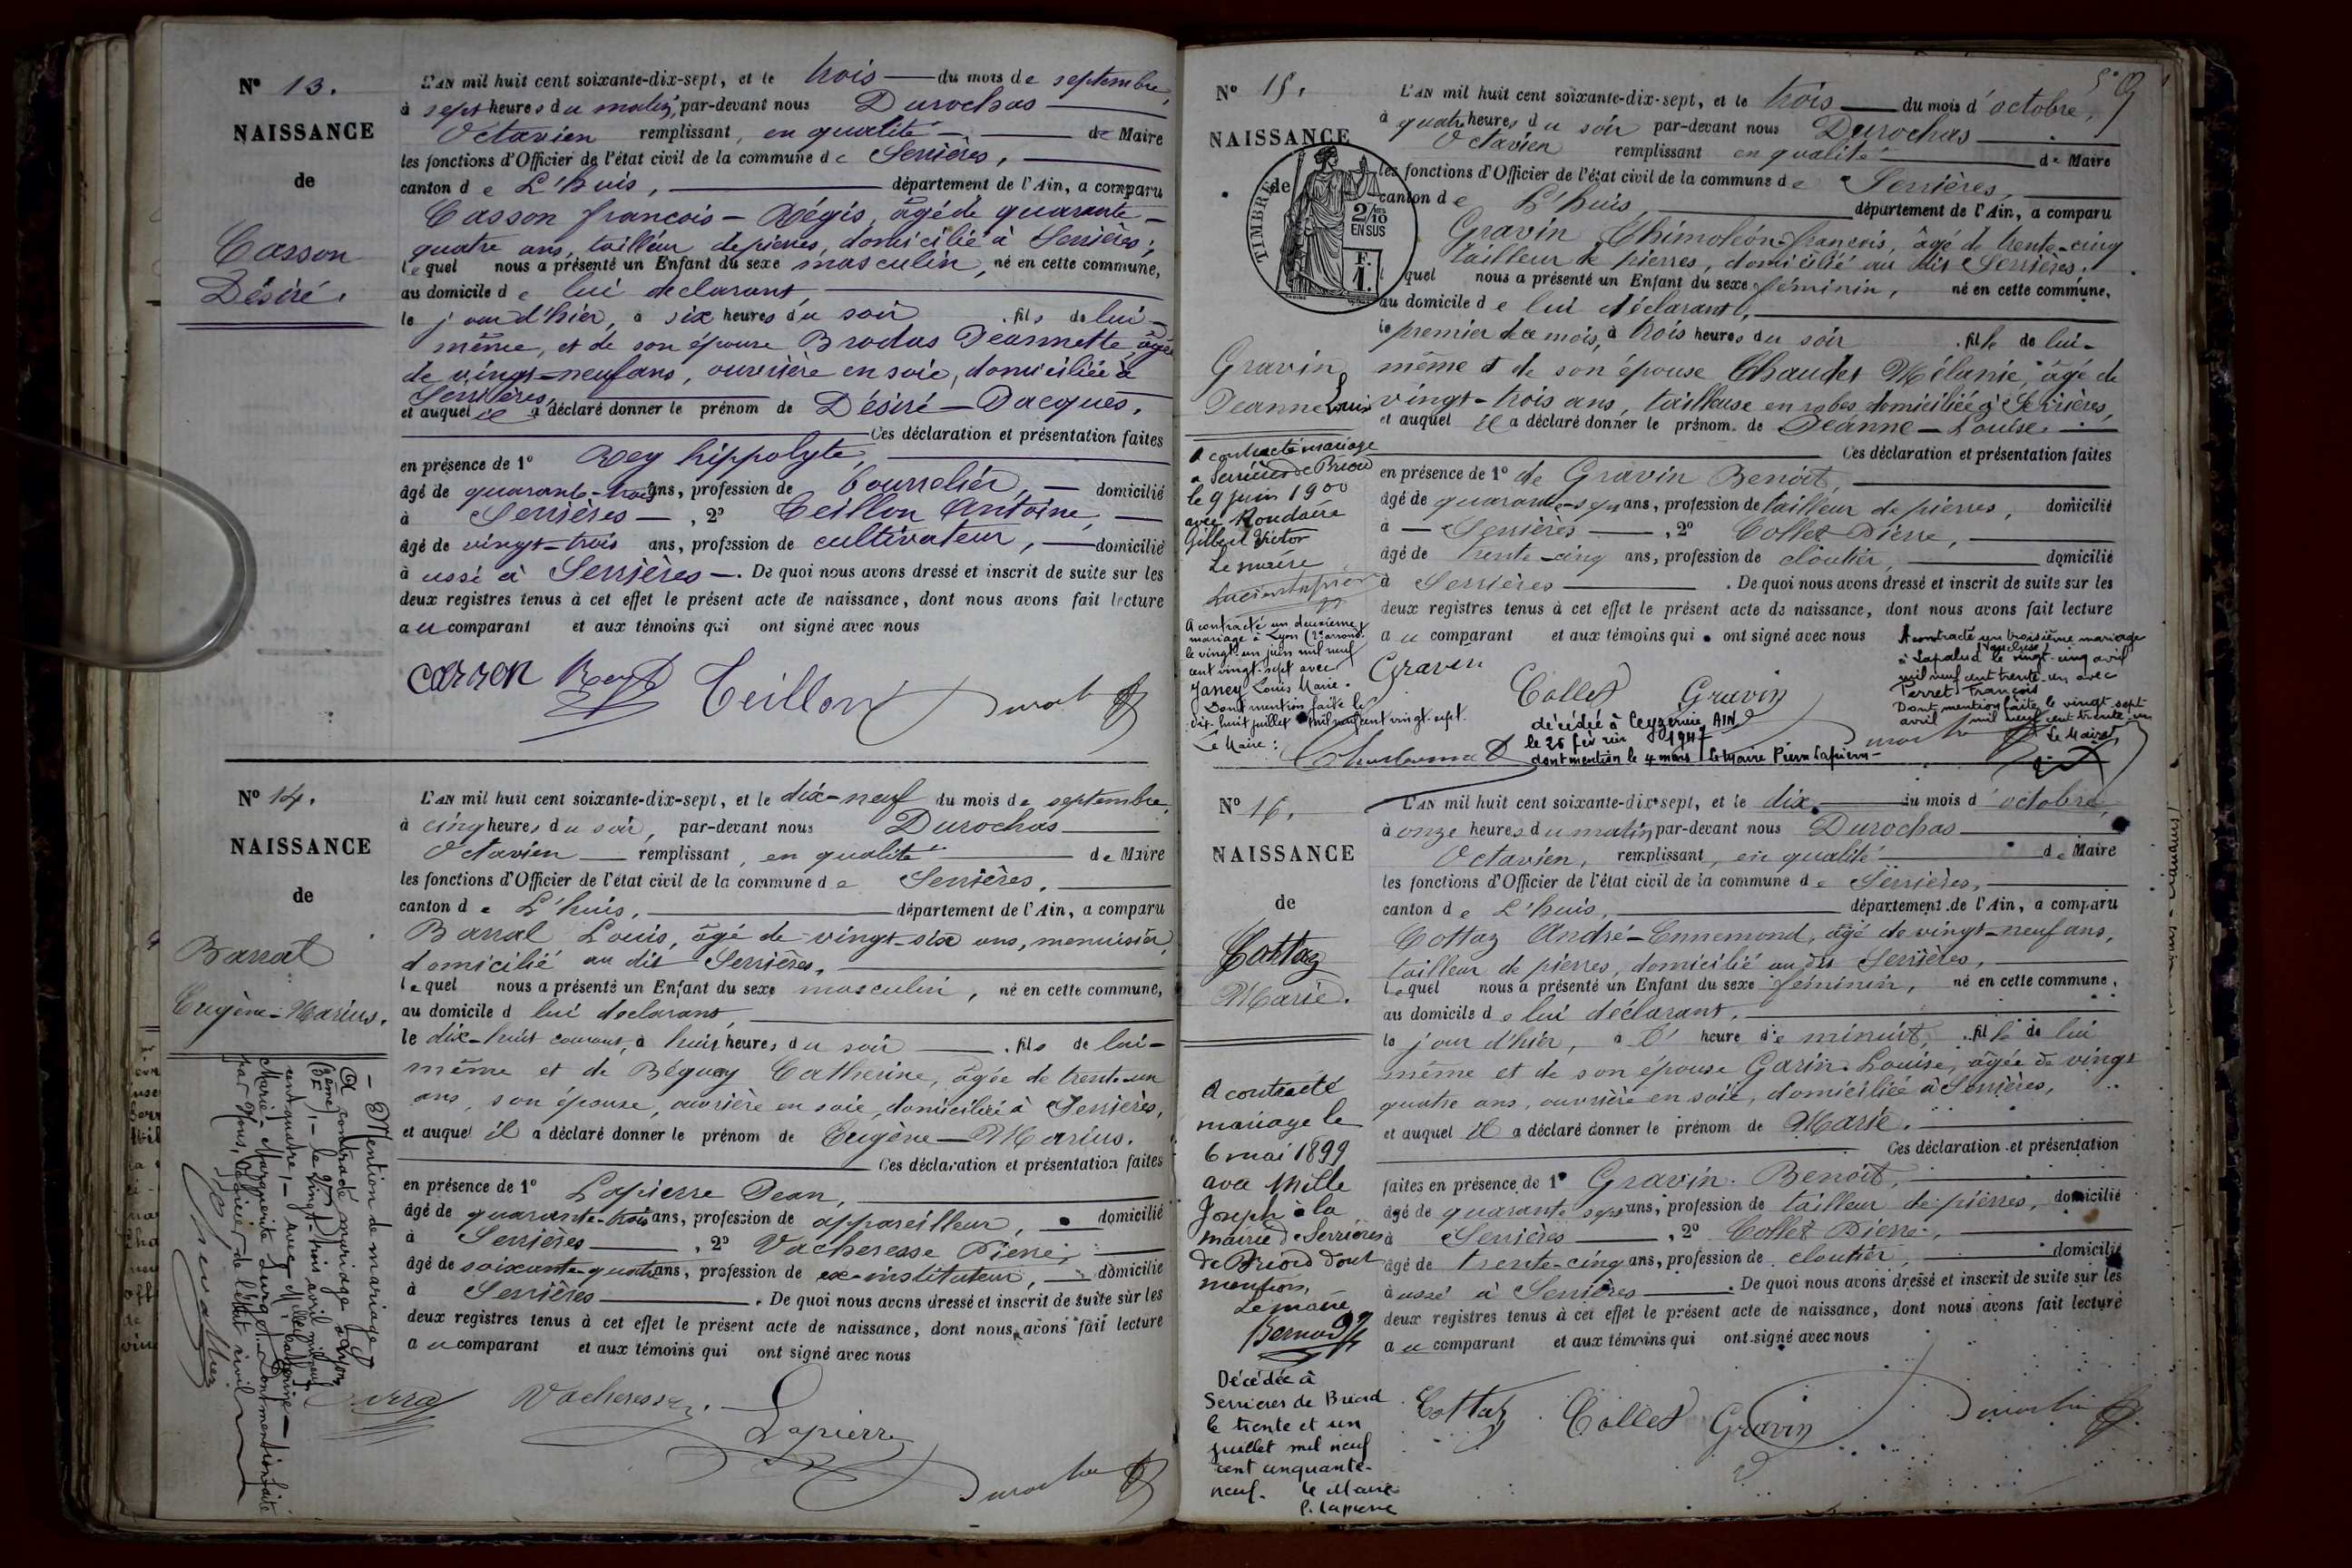 N° 13.
NAISSANCE
de
Casson
Désiré.
L'AN mil huit cent soixante-dix-sept, et le trois du mois de septembre,
à sept heures du matin, par-devant nous Durochas
Octavien remplissant, en qualité de Maire
les fonctions d'Officier de l'état civil de la commune de Serrières,
canton de L'huis, département de l'Ain, a comparu
Casson françois-Régis, âgé de quarante-
quatre ans, tailleur de pierres, domicilié à Serrières;
lequel nous a présenté un Enfant du sexe masculin, né en cette commune,
au domicile de lui déclarant,
le jour d'hier, à six heures du soir fils de lui-
même, et de son épouse Brodas Jeannette âgée
de vingt-neuf ans, ouvrière en soie, domiciliée à
Serrières,
et auquel il a déclaré donner le prénom de Désiré-Jacques.
Ces déclaration et présentation faites
en présence de 1° Rey hippolyte,
âgé de quarante-trois ans, profession de bourrelier, domicilié
à Serrières, 2° Teillon Antoine,
âgé de vingt-trois ans, profession de cultivateur, domicilié
à ussé à Serrières. De quoi nous avons dressé et inscrit de suite sur les
deux registres tenus à cet effet le présent acte de naissance, dont nous avons fait lecture
au comparant et aux témoins qui ont signé avec nous
Rey Teillon
N° 14.
NAISSANCE
de
Barral
Eugène-Marius.
L'AN mil huit cent soixante-dix-sept, et le dix-neuf du mois de septembre,
à cinq heures du soir, par-devant nous Durochas
Octavien remplissant, en qualité de Maire
les fonctions d'Officier de l'état civil de la commune de Serrières,
canton de L'huis, département de l'Ain, a comparu
Barral Louis, âgé de vingt-six ans, menuisier
domicilié au dit Serrières,
lequel nous a présenté un Enfant du sexe masculin, né en cette commune,
au domicile d lui déclarant,
le dix-huit courant, à huit heures du soir fils de lui-
même et de Béguay Catherine, âgée de trente-un
ans, son épouse, ouvrière en soie, domiciliée à Serrières,
et auquel il a déclaré donner le prénom de Eugène-Marius.
Ces déclaration et présentation faites
en présence de 1° Lapierre Jean,
âgé de quarante-trois ans, profession de appareilleur, domicilié
à Serrières, 2° Vacheresse Pierre,
âgé de soixante-quatre ans, profession de ex-instituteur, domicilié
à Serrières. De quoi nous avons dressé et inscrit de suite sur les
deux registres tenus à cet effet le présent acte de naissance, dont nous avons fait lecture
au comparant et aux témoins qui ont signé avec nous
Vacheresse
Lapierre
Mention de mariage
A contracté mariage à Lyon,
(3ème), le vingt-trois avril mil neuf
cent quatre, avec Melle Catherine
Marie-Marguerite Dont mention faite
par nous, officier de l'état civil
N° 15.
NAISSANCE
de
TIMBRE
2/10 EN SUS
F. 1.
Gravin
Jeanne Louise
L'AN mil huit cent soixante-dix-sept, et le trois du mois d'octobre,
à quatre heures du soir par-devant nous Durochas
Octavien remplissant en qualité de Maire
les fonctions d'Officier de l'état civil de la commune de Serrières,
canton de L'huis département de l'Ain, a comparu
Gravin Thimoléon-françois, âgé de trente-cinq
tailleur de pierres, domicilié au dit Serrières.
lequel nous a présenté un Enfant du sexe féminin, né en cette commune,
au domicile de lui déclarant,
le premier de ce mois, à trois heures du soir fille de lui-
même et de son épouse Chaudet Mélanie, âgé de
vingt-trois ans, tailleuse en robes domiciliée à Serrières,
et auquel il a déclaré donner le prénom de Jeanne-Louise.
Ces déclaration et présentation faites
en présence de 1° de Gravin Benoît,
âgé de quarante-sept ans, profession de tailleur de pierres, domicilié
à Serrières, 2° Collet Pierre,
âgé de trente-cinq ans, profession de cloutier, domicilié
à Serrières. De quoi nous avons dressé et inscrit de suite sur les
deux registres tenus à cet effet le présent acte de naissance, dont nous avons fait lecture
au comparant et aux témoins qui ont signé avec nous
Gravin
Collet Gravin
A contracté mariage
a Serrières de Briord
le 9 juin 1900
avec Roudaire
Gilbert Victor
Le maire
A contracté un deuxième
mariage à Lyon (2e arrond.)
le vingt-un juin mil neuf
cent vingt-sept avec
Janey Louis Marie.
Dont mention faite le
dix-huit juillet mil neuf cent vingt-sept.
Le Maire:
A contracté un troisième mariage
à Lapalud (Vaucluse) le vingt-cinq avril
mil neuf cent trente-un avec
Perret François
Dont mention faite le vingt-sept
avril mil neuf cent trente-un
Le Maire,
décédée à Ceyzérieu AIN
le 26 février 1947
dont mention le 4 mars Le Maire Pierre Lapierre
N° 16.
NAISSANCE
de
Cottaz
Marie.
L'AN mil huit cent soixante-dix-sept, et le dix du mois d'octobre,
à onze heures du matin, par-devant nous Durochas
Octavien, remplissant, en qualité de Maire
les fonctions d'Officier de l'état civil de la commune de Serrières,
canton de L'huis, département de l'Ain, a comparu
Cottaz André-Ennemond, âgé de vingt-neuf ans,
tailleur de pierres, domicilié au dit Serrières,
lequel nous a présenté un Enfant du sexe féminin, né en cette commune,
au domicile de lui déclarant,
le jour d'hier, à l' heure de minuit, fille de lui
même et de son épouse Garin Louise, âgée de vingt
quatre ans, ouvrière en soie, domiciliée à Serrières,
et auquel il a déclaré donner le prénom de Marie.
Ces déclaration et présentation
faites en présence de 1° Gravin Benoît,
âgé de quarante sept ans, profession de tailleur de pierres, domicilié
à Serrières, 2° Collet Pierre,
âgé de trente-cinq ans, profession de cloutier, domicilié
à ussé à Serrières. De quoi nous avons dressé et inscrit de suite sur les
deux registres tenus à cet effet le présent acte de naissance, dont nous avons fait lecture
au comparant et aux témoins qui ont signé avec nous
Cottaz Collet Gravin
A contracté
mariage le
6 mai 1899
avec Mille
Joseph à la
mairie de Serrières
de Briord dont
mention,
Le maire
Décédée à
Serrières de Briord
le trente et un
juillet mil neuf
cent cinquante-
neuf. Le Maire
P. Lapierre